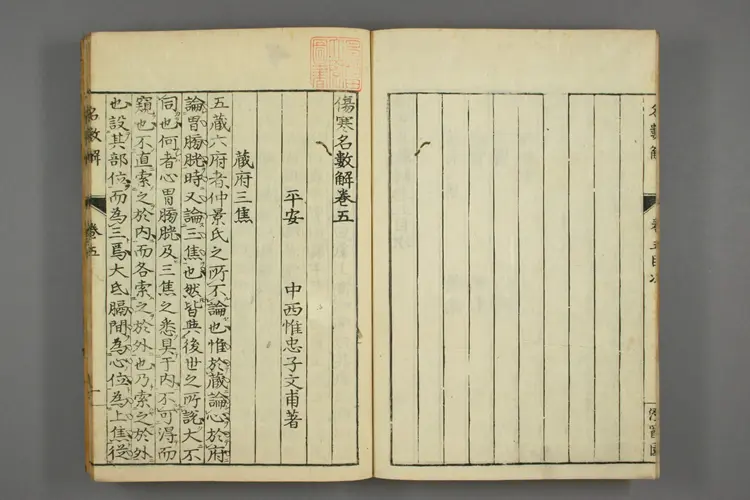 名數解
卷五目次
傷寒名數解卷五
平安 中西惟忠子文甫著
藏府三焦
五藏六府者仲景氏之所不論也惟於藏論心於府
論胃膀胱時又論三焦也然皆與後世之所說大不
同也何者心胃膀胱及三焦之悉具于內不可得而
窺也不直索之於內而各索之於外也乃索之於外
也設其部位而為三焉大氐膈間為心位為上焦從
名數解
卷五
一